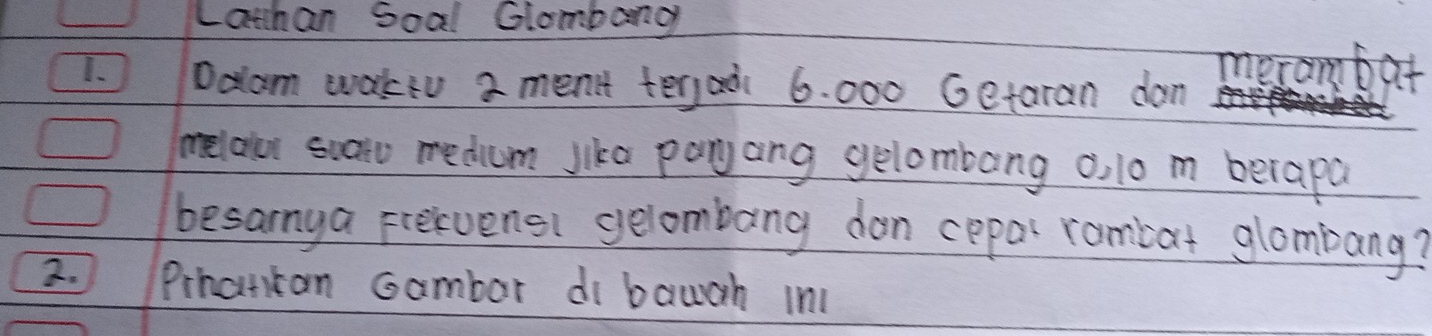 Latihan Soal Glombang
1. Dalam waktu 2 menit terjadi 6.000 Getaran dan merambat
melalui suatu medium jika panjang gelombang 0,10 m berapa
besarnya Frekuensi gelombang dan cepat rambat glombang?
2. Prhatikan Gambar di bawah ini